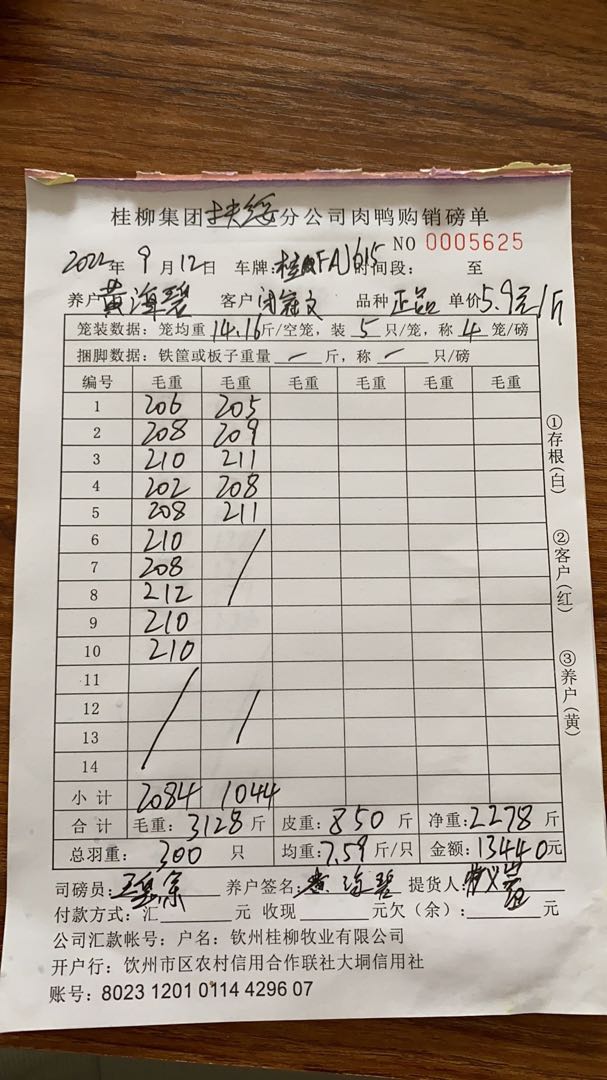 桂柳集团扶绥分公司肉鸭购销磅单
NO 0005625
2022年 9 月 12 日 车牌: 时间段: 至
养户 黄海碧 客户 品种 正品 单价 5.9元/斤
笼装数据: 笼均重 14.16 斤/空笼, 装 5 只/笼, 称 4 笼/磅
捆脚数据: 铁筐或板子重量 — 斤, 称 — 只/磅
编号 毛重 毛重 毛重 毛重 毛重 毛重
1 206 205
2 208 209
3 210 211
4 202 208
5 208 211
6 210
7 208
8 212
9 210
10 210
11
12
13
14
小 计 2084 1044
合 计 毛重: 3128 斤 皮重: 850 斤 净重: 2278 斤
总羽重: 300 只 均重: 7.59 斤/只 金额: 13440元
①存根(白)
②客户(红)
③养户(黄)
司磅员: 养户签名: 黄海碧 提货人:
付款方式: 汇 元 收现 元欠(余): 元
公司汇款帐号: 户名: 钦州桂柳牧业有限公司
开户行: 饮州市区农村信用合作联社大垌信用社
账号: 8023 1201 0114 4296 07